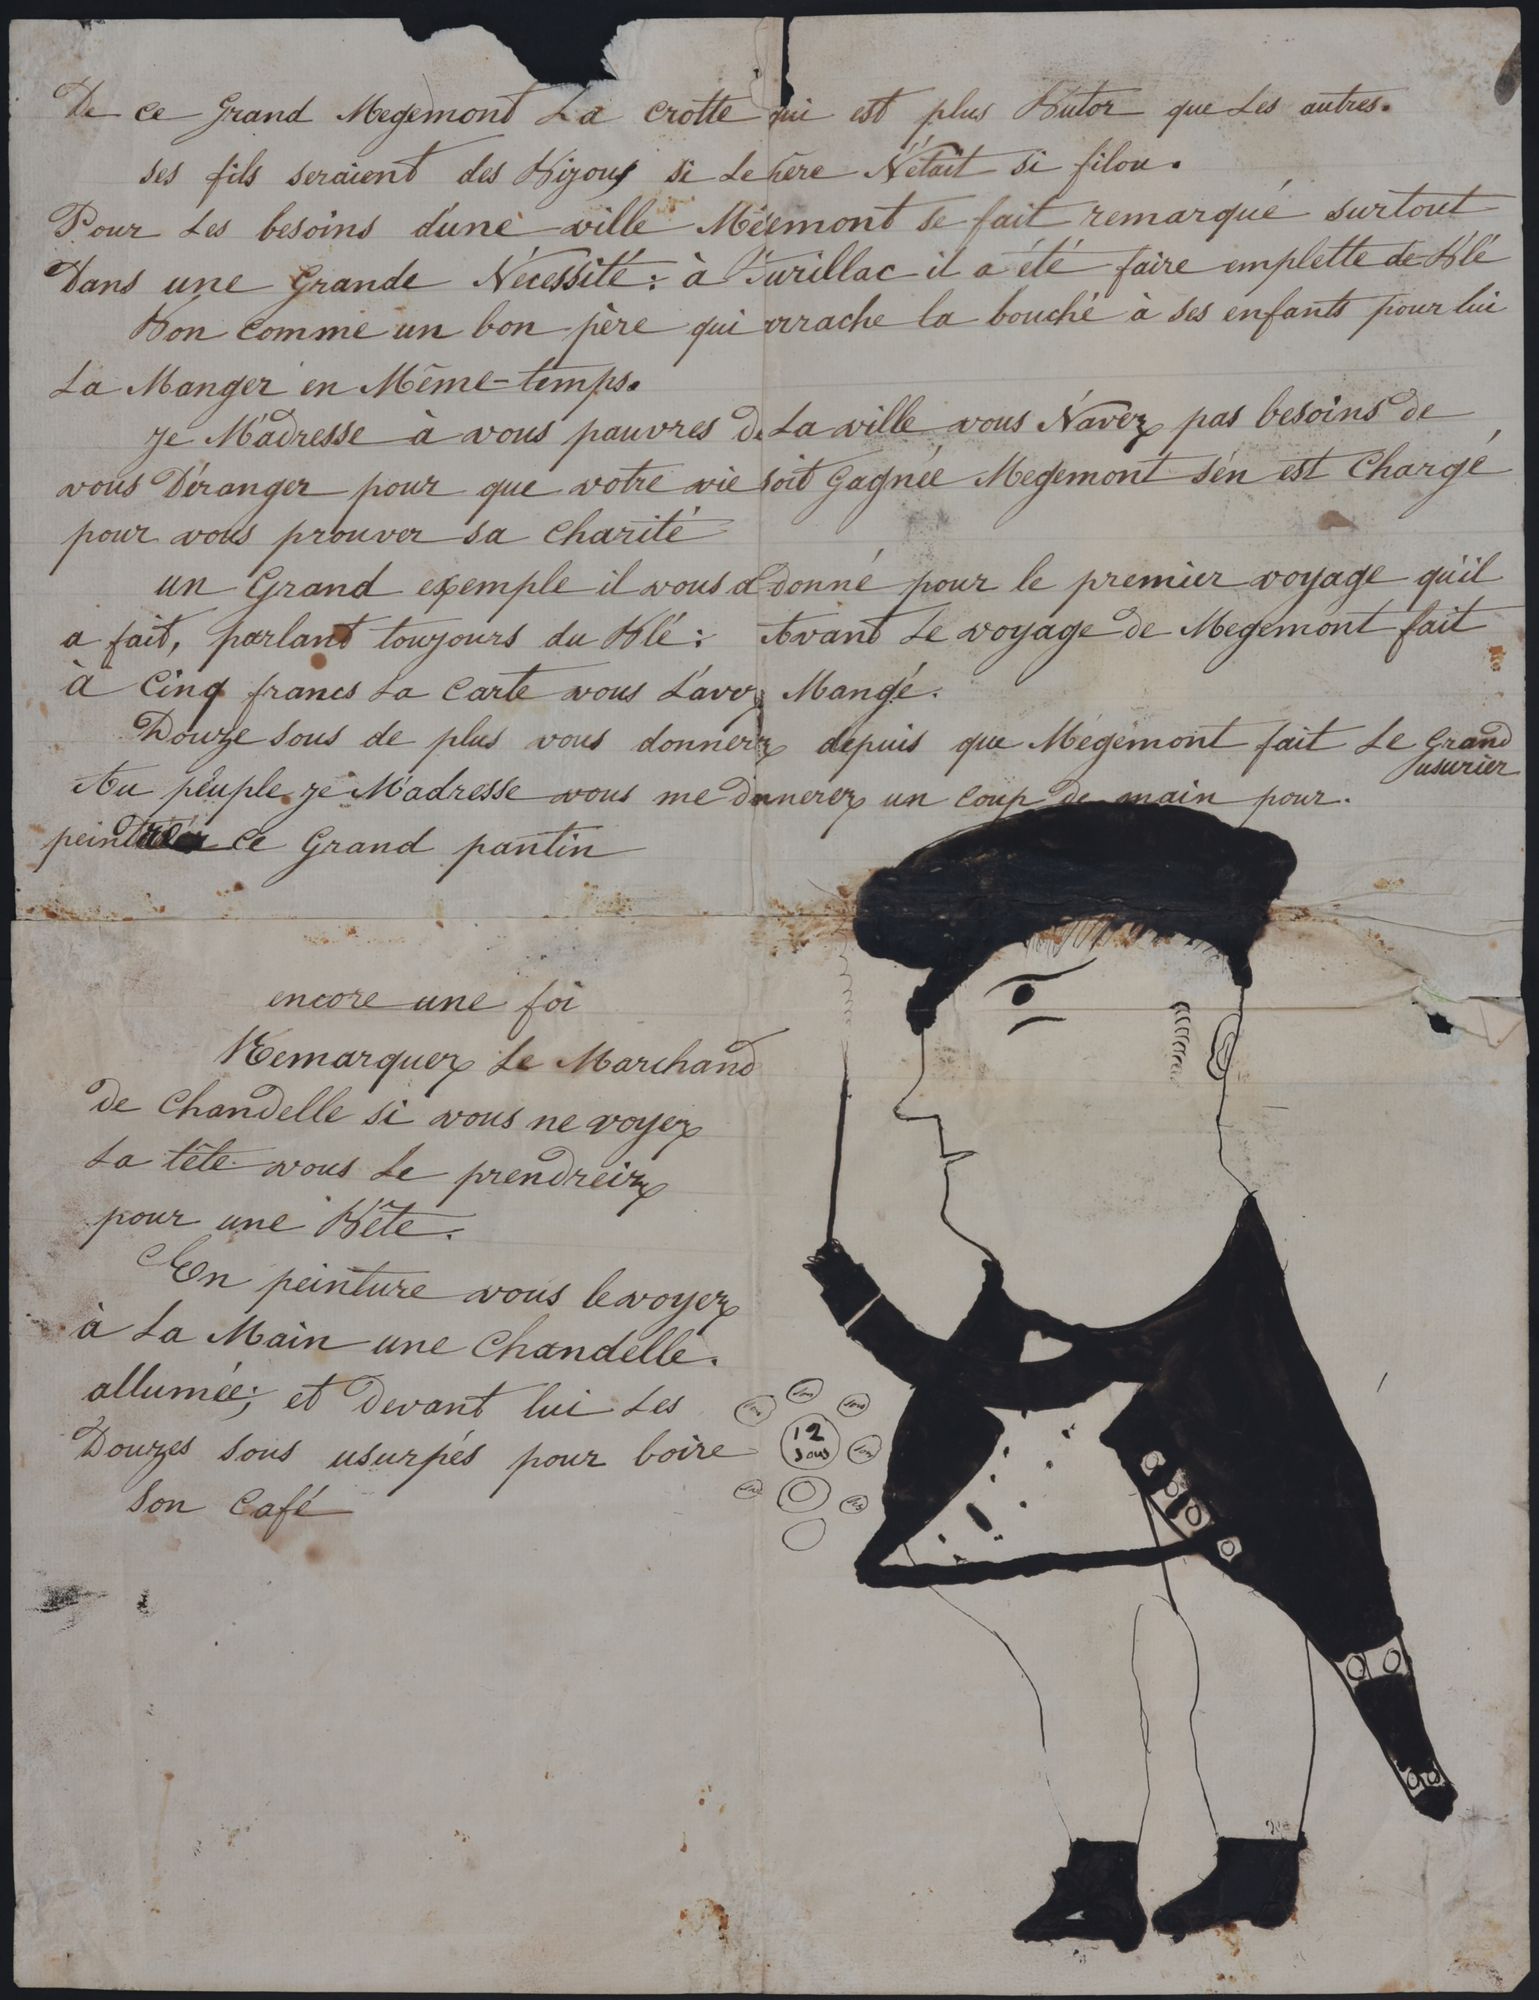 De ce Grand Megemont La crotte qui est plus Butor que Les autres.
ses fils seraient des Bijoux si Le Père N'était si filou.
Pour Les besoins d'une ville Mégemont se fait remarqué surtout
Dans une Grande Nécessité: à Aurillac il a été faire emplette de Blé
Bon comme un bon père qui arrache la bouché à ses enfants pour lui
La Manger en Même-temps.
Je M'adresse à vous pauvres de La ville vous N'avez pas besoins de
vous Déranger pour que votre vie soit Gagnée Megemont s'en est Chargé
pour vous prouver sa Charité
un Grand exemple il vous a donné pour le premier voyage qu'il
a fait, parlant toujours du Blé: Avant Le voyage de Megemont fait
à Cinq francs La Carte vous L'avez Mangé.
Douze Sous de plus vous donnerez depuis que Mégemont fait Le Grand
usurier
Au peuple Je M'adresse vous me donnerez un Coup de main pour.
peindre ce Grand pantin
encore une foi
Remarquez Le Marchand
de Chandelle si vous ne voyez
La tête vous Le prendreiz
pour une Bête.
En peinture vous le voyez
à La Main une Chandelle.
allumée; et Devant lui Les
Douzes Sous usurpés pour boire
Son Café
sou
sou
sou
12
sous
sou
sou
sou